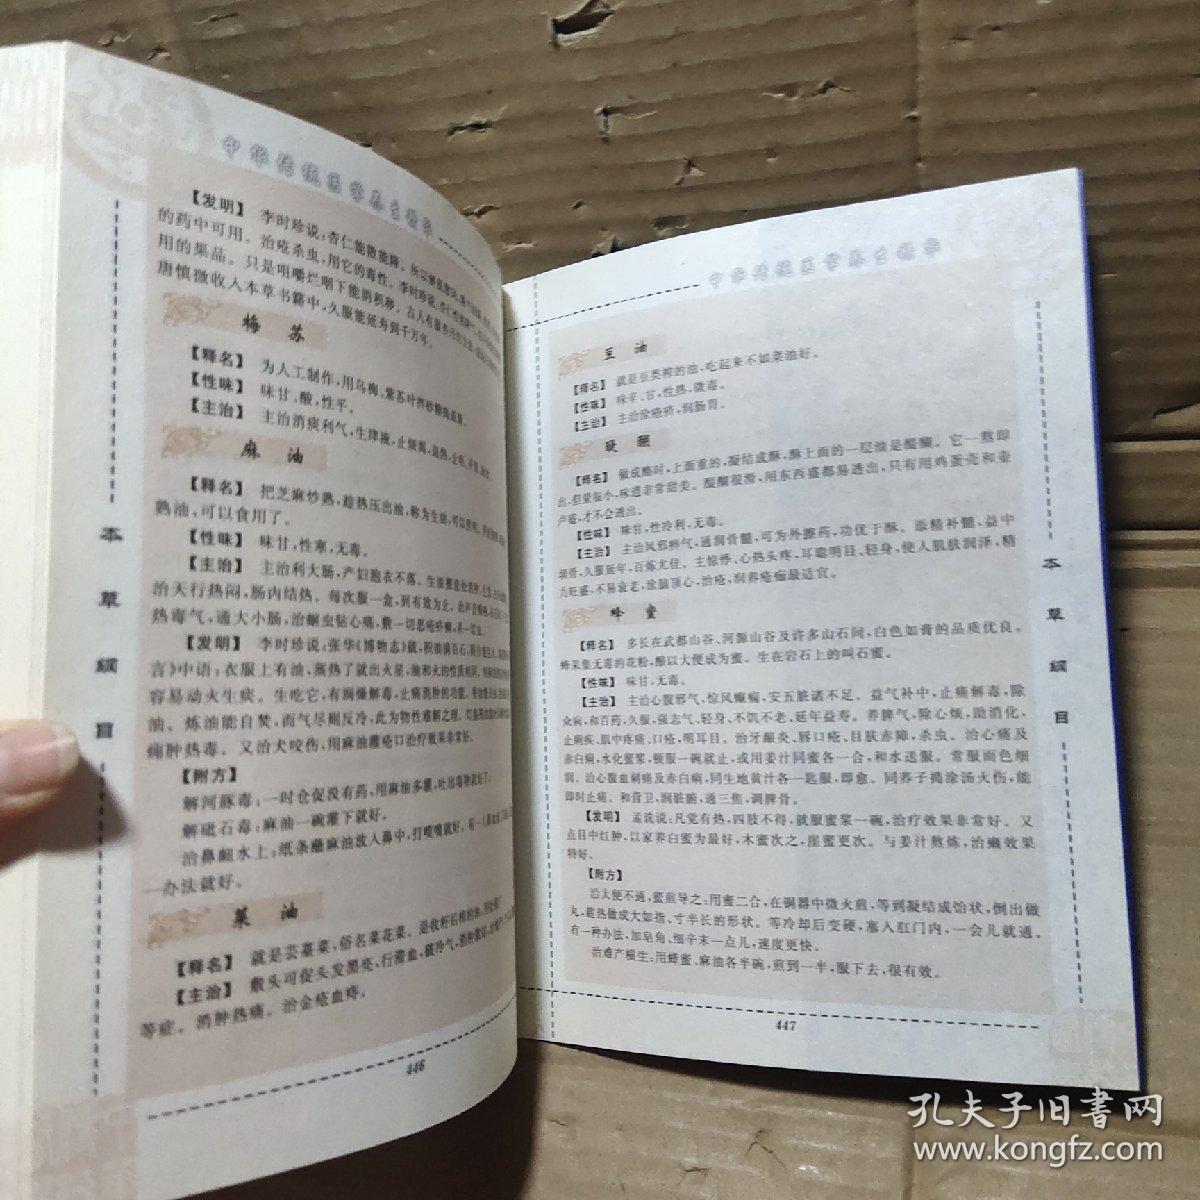 中华传统医学养生精华
【发明】 李时珍说：杏仁能散能降。所以解肌
的药中可用。治疮杀虫，用它的毒性。李时珍说：杏仁性
用的果品。只是咀嚼烂咽下能消积秽。古人有服杏丹的方法
唐慎微收入本草书籍中，久服能延寿到千万年。
梅苏
【释名】 为人工制作，用乌梅、紫苏叶拌砂糖捣成膏。
【性味】 味甘、酸，性平。
【主治】 主治消痰利气，生津液，止烦渴，退热，止咳
麻油
【释名】 把芝麻炒熟，趁热压出油，称为生油，可以
熟油，可以食用了。
【性味】 味甘，性寒，无毒。
【主治】 主治利大肠，产妇胞衣不落。生油
治天行热闷，肠内结热。每次服一盒，到有效为止。治声音嘶哑
热毒气，通大小肠，治蛔虫钻心痛，敷一切恶疮疥癣，杀一切虫。
【发明】 李时珍说：张华《博物志》载，积油满百石
言》中语：衣服上有油，蒸热了就出火星，油和火的性质相同
容易动火生痰。生吃它，有润燥解毒，止痛消肿的功能。
油。炼油能自焚，而气尽则反冷，此为物性难解之理。
痈肿热毒。又治犬咬伤，用麻油灌疮口治疗效果非常好。
【附方】
解河豚毒：一时仓促没有药，用麻油多灌，吐出毒物就好了。
解砒石毒：麻油一碗灌下就好。
治鼻衄水上：纸条蘸麻油放入鼻中，打喷嚏就好。
一办法就好。
菜油
【释名】 就是芸薹菜，俗名菜花菜。是收籽后榨的油
【主治】 敷头可促头发黑亮，行滞血，破冷气，消肿散结
等症。消肿热痛。治金疮血痔。
446
本草纲目
中华传统医学养生精华
豆油
【释名】 就是豆类榨的油，吃起来不如菜油好。
【性味】 味辛、甘，性热，微毒。
【主治】 主治涂疮疥，润肠胃。
醍醐
【释名】 做成酪时，上面重的，凝结成酥，酥上面的一层油是醍醐。它一熬即
出，但量很小，味道非常甜美。醍醐很滑，用东西盛都易透出，只有用鸡蛋壳和壶
卢盛，才不会透出。
【性味】 味甘，性冷利，无毒。
【主治】 主治风邪痹气，通润骨髓，可为外擦药，功优于酥。添精补髓，益中
填骨，久服延年，百炼尤佳。主惊悸、心热头疼、耳聪明目，轻身，使人肌肤润泽，精
力旺盛，不易衰老，涂脑顶心，治疮，润养疮痂最适宜。
蜂蜜
【释名】 多长在武都山谷、河源山谷及许多山石间，白色如膏的品质优良。
蜂采集无毒的花粉，酿以大便成为蜜。生在岩石上的叫石蜜。
【性味】 味甘，无毒。
【主治】 主治心腹邪气，惊风癫痫，安五脏诸不足。益气补中，止痛解毒，除
众病，和百药，久服，强志气，轻身、不饥不老，延年益寿。养脾气，除心烦，助消化，
止痢疾、肌中疼痛、口疮，明耳目。治牙龈炎、唇口疮、目肤赤障，杀虫。治心痛及
赤白痢，水化蜜浆，顿服一碗就止，或用姜汁同蜜各一合，和水送服。常服面色细
润。治心腹血刺痛及赤白痢，同生地黄汁各一匙服，即愈。同荞子捣涂汤火伤，能
即时止痛。和营卫，润脏腑，通三焦，调脾胃。
【发明】 孟诜说：凡觉有热，四肢不得，就服蜜浆一碗，治疗效果非常好。又
点目中红肿，以家养白蜜为最好，木蜜次之，崖蜜更次。与姜汁熬炼，治癞效果
特好。
【附方】
治大便不通，蜜煎导之：用蜜二合，在铜器中微火煎，等到凝结成饴状，倒出做
丸，趁热做成大如指、寸半长的形状。等冷却后变硬，塞入肛门内，一会儿就通。
有一种办法，加皂角、细辛末一点儿，速度更快。
治难产横生：用蜂蜜、麻油各半碗，煎到一半，服下去，很有效。
447
本草纲目
孔夫子旧书网
www.kongfz.com